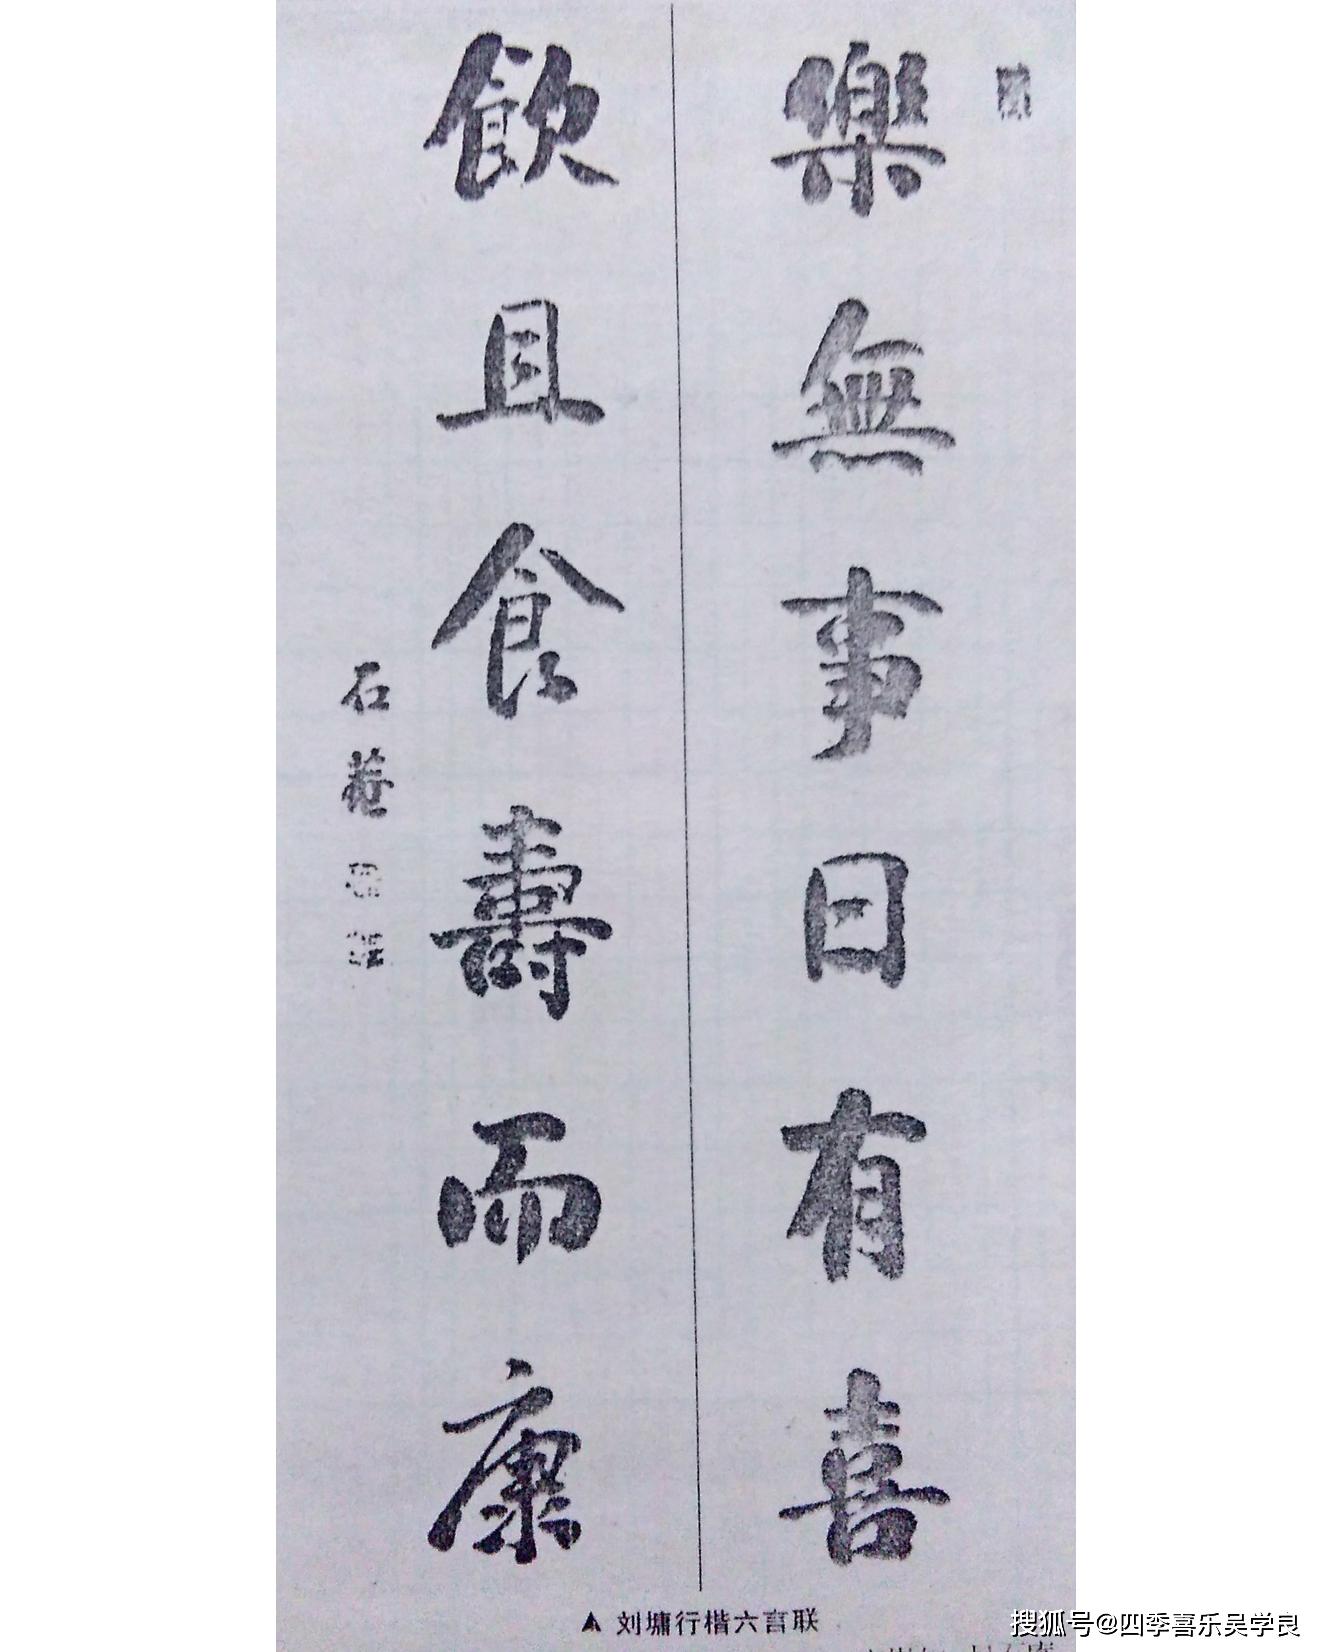 樂無事日有喜
飲且食壽而康
石菴
▲ 刘墉行楷六言联
搜狐号@四季喜乐吴学良